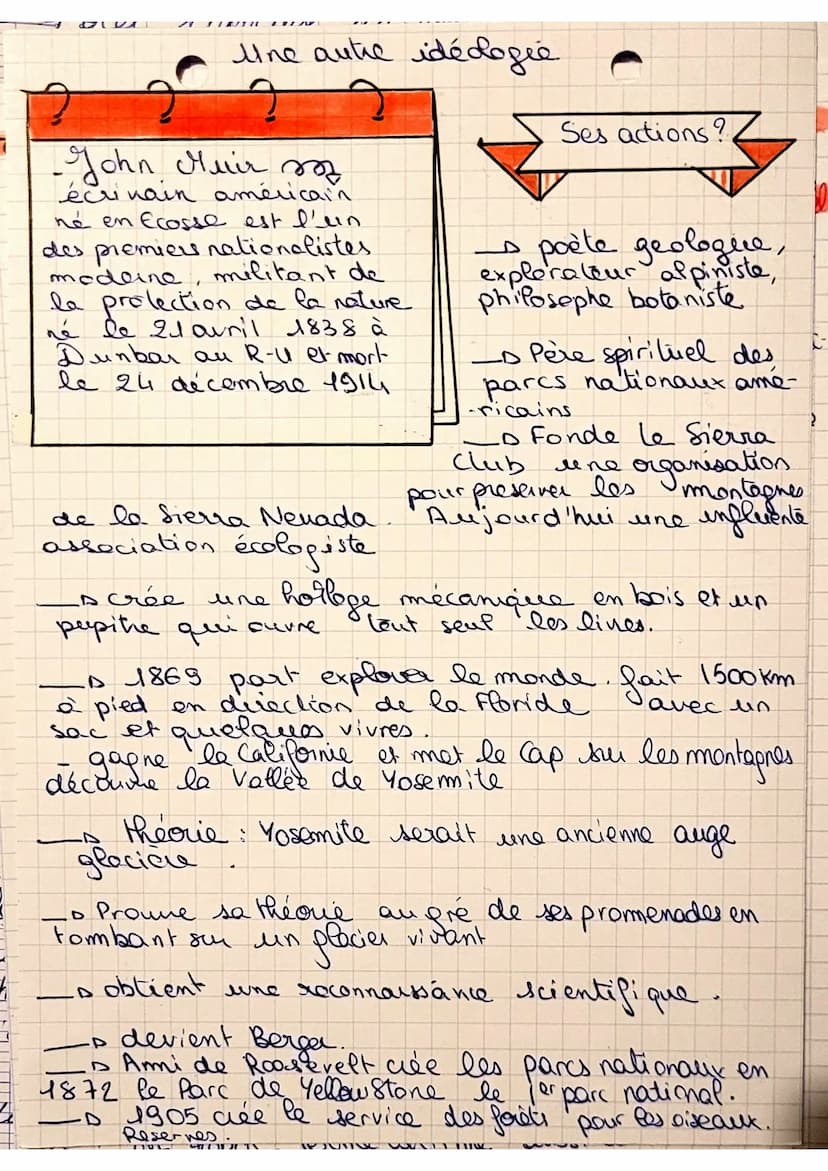 Une autre idéologie
- John Muir
écrivain américain
né en Ecosse est l'un
des premiers nationalistes
moderne, militant de
la protection de la nature
né le 21 avril 1838 à
Dunbar au R-U et mort
le 24 décembre 1914
Ses actions?
→ poète geologue,
explorateur alpiniste,
philosophe botaniste
→ Père spirituel des
parcs nationaux amé-
-ricains
→ Fonde le Sierra
Club une organisation
pour preserver les montagnes
de la Sierra Nevada. Aujourd'hui une influente
association écologiste
→ crée une horloge mécanique en bois et un
pupitre qui ouvre tout seul les livres.
→ 1869 part explorer le monde. fait 1500 km
à pied en direction de la Floride avec un
sac et quelques vivres.
- gagne la Californie et met le cap sur les montagnes
découvre la Vallée de Yosemite
→ théorie : Yosemite serait une ancienne auge
glacière.
→ Prouve sa théorie au gré de ses promenades en
tombant sur un glacier vivant
→ obtient une reconnaissance scientifique.
→ devient Berger.
→ Ami de Roosevelt crée les parcs nationaux en
1872 le Parc de YellowStone le 1er parc national.
→ 1905 crée le service des forêts pour les oiseaux.
Reserves.